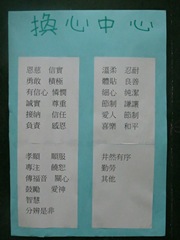 換心中心
恩慈 信實
勇敢 積極
有信心 憐憫
誠實 尊重
接納 信任
負責 感恩
溫柔 忍耐
體貼 良善
細心 純潔
節制 謙讓
愛人 節制
喜樂 和平
孝順 順服
專注 饒恕
傳福音 關心
鼓勵 愛神
智慧
分辨是非
井然有序
勤勞
其他